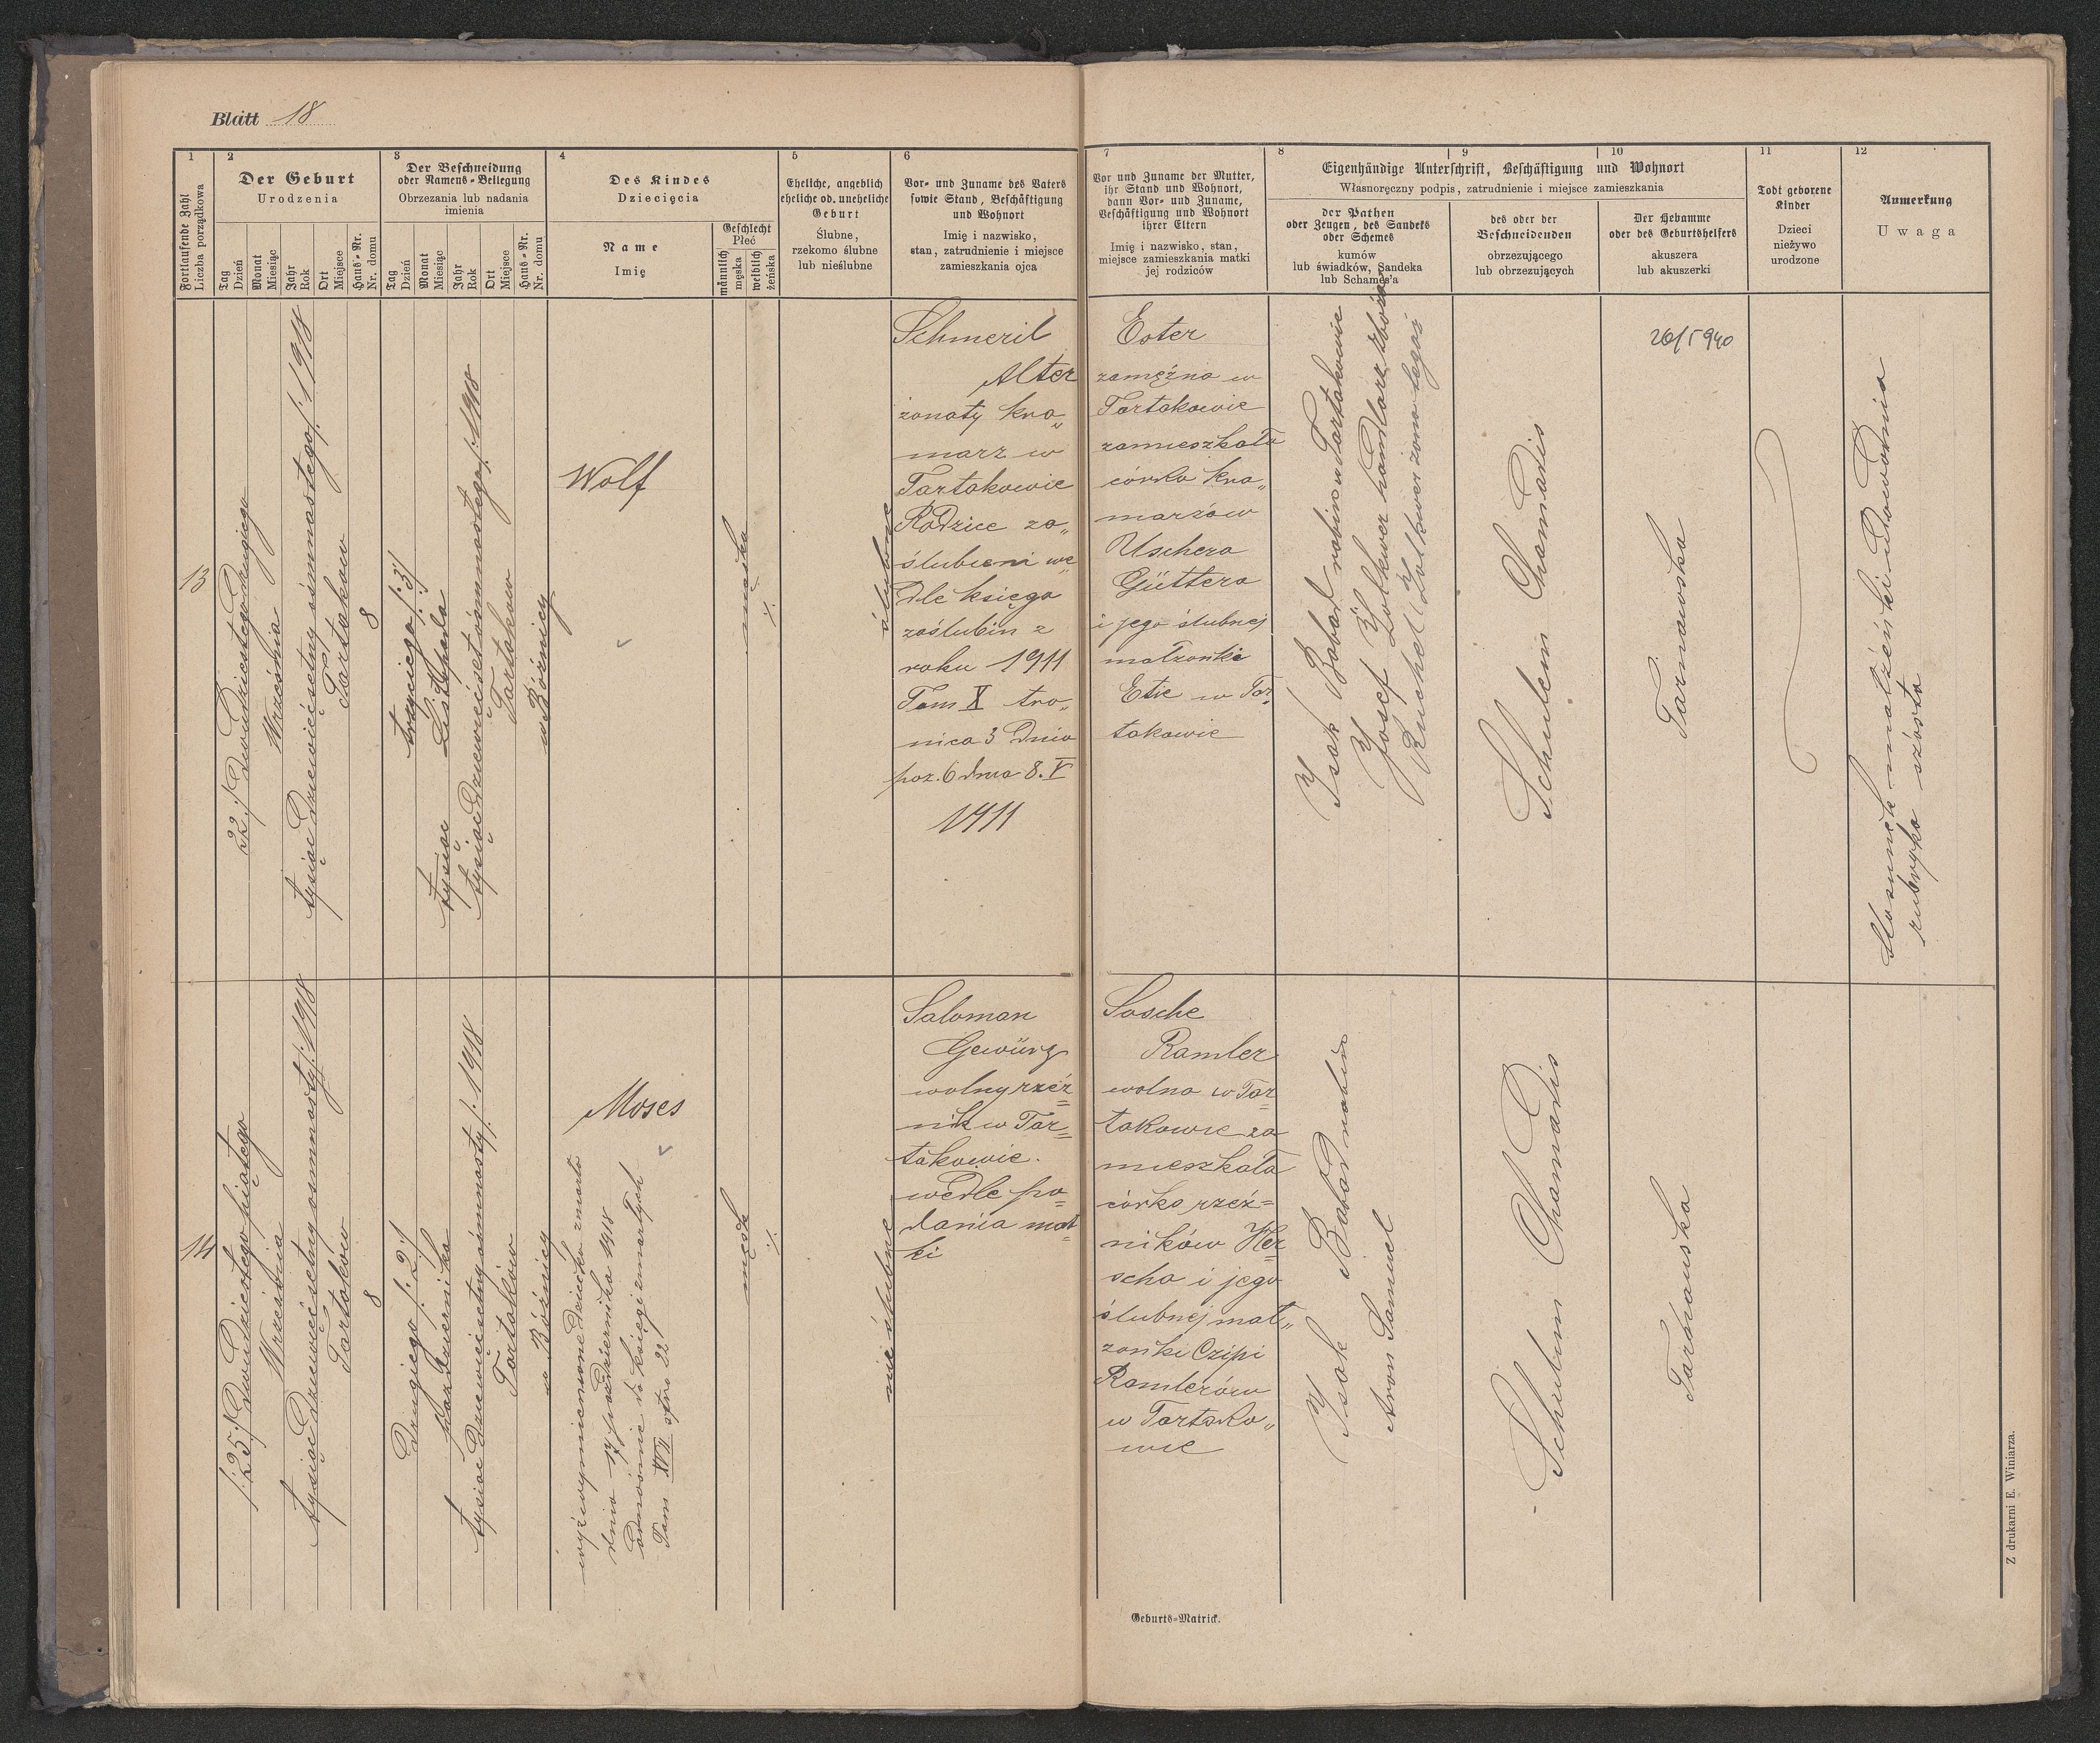 Blatt 18
1
Fortlaufende Zahl
Liczba porządkowa
2
Der Geburt
Urodzenia
Tag
Dzień
Monat
Miesiąc
Jahr
Rok
Ort
Miejsce
Haus-Nr.
Nr. domu
3
Der Beschneidung
oder Namens-Beilegung
Obrzezania lub nadania
imienia
Tag
Dzień
Monat
Miesiąc
Jahr
Rok
Ort
Miejsce
Haus-Nr.
Nr. domu
4
Des Kindes
Dziecięcia
Name
Imię
Geschlecht
Płeć
männlich
męska
weiblich
żeńska
5
Eheliche, angeblich
eheliche od. uneheliche
Geburt
Ślubne,
rzekomo ślubne
lub nieślubne
6
Vor- und Zuname des Vaters
sowie Stand, Beschäftigung
und Wohnort
Imię i nazwisko,
stan, zatrudnienie i miejsce
zamieszkania ojca
7
Vor und Zuname der Mutter,
ihr Stand und Wohnort,
dann Vor- und Zuname,
Beschäftigung und Wohnort
ihrer Eltern
Imię i nazwisko, stan,
miejsce zamieszkania matki
jej rodziców
8
9
10
Eigenhändige Unterschrift, Beschäftigung und Wohnort
Własnoręczny podpis, zatrudnienie i miejsce zamieszkania
der Pathen
oder Zeugen, des Sandeks
oder Schemes
kumów
lub świadków, Sandeka
lub Schames'a
des oder der
Beschneidenden
obrzezującego
lub obrzezujących
Der Hebamme
oder des Geburtshelfers
akuszera
lub akuszerki
11
Todt geborene
Kinder
Dzieci
nieżywo
urodzone
12
Anmerkung
Uwaga
13
22./ Dwudziestego drugiego
Września
tysiąc dziewięćsetny ośmnastego /: 1918
Tartaków
8
trzeciego /: 3/
Listopada
tysiąc
tysiąc dziewięćset ośmnastego /: 1918
Tartaków
w Bóżnicy
Wolf
męska
./.
ślubne
Schmeril
Alter
żonaty kra„
marz w
Tartakowie
Rodzice za„
ślubieni we„
dle księga
zaślubin z
roku 1911
Tom X stro„
nica 3 Dnia
poz. 6 dnia 8. V
1911
Ester
zamężna w
Tartakowie
zamieszkała
córka kra„
marzów
Uschera
Güttera
i jego ślubnej
małżonki
Etie w Tar„
takowie
Isak Babad rabin w Tartakowie
Josef Zolkwer handlarz zboża
Ruchel Zolkwer żona tegoż
Schulem Chamadis
26/5 940
Tarnawska
Stosunek małżeński udowodnia
rubryka szósta
14
/: 25 :/ Dwudziestego piątego
Września
tysiąc dziewięćsetny osmnasty /: 1918
Tartaków
8
Drugiego /: 2 :/
października
tysiąc dziewięćsetny ośmnasty /: 1918
Tartaków
w Bóżnicy
Moses
wyżej wymienione dziecko zmarło
dnia 17 października 1918
odnośnie do księgi zmarłych
Tom XVII str. 22
męsk
./.
nie ślubne
Saloman
Gewürz
wolny rzeź=
nik w Tar=
takowie.
wedle po=
dania mat=
ki
Sosche
Ramler
wolna w Tar=
takowie za
mieszkała
córka rzeź=
ników Her=
scha i jego
ślubnej mał„
żonki Czipi
Ramlerów
w Tartako„
wie
Isak Babad rabin
Aron Samuel
Schulem Chamadis
Tarnawska
Geburts-Matrick.
Z drukarni E. Winiarza.